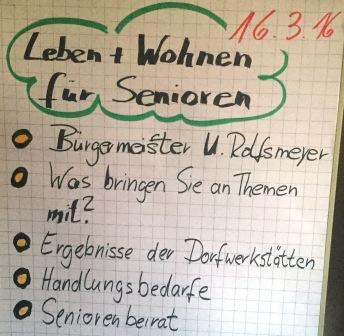 16.3.16
Leben + Wohnen
für Senioren
Bürgermeister U. Rolfsmeyer
Was bringen Sie an Themen
mit?
Ergebnisse der Dorfwerkstätten
Handlungsbedarfe
Seniorenbeirat